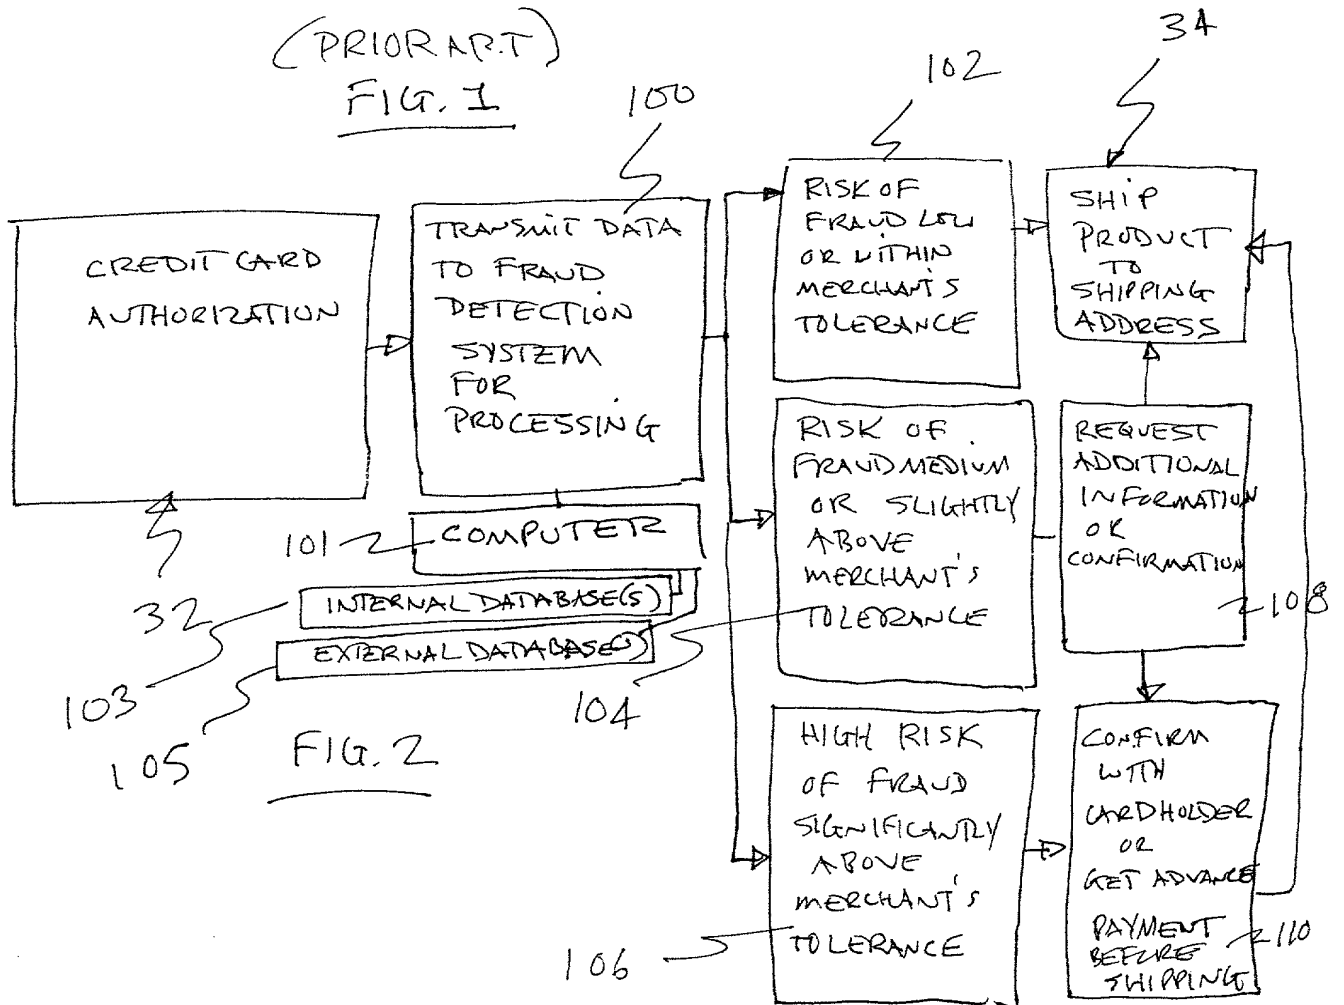 (PRIOR ART)
FIG. 1
100
102
34
CREDIT CARD
AUTHORIZATION
TRANSMIT DATA
TO FRAUD
DETECTION
SYSTEM
FOR
PROCESSING
RISK OF
FRAUD LOW
OR WITHIN
MERCHANT'S
TOLERANCE
SHIP
PRODUCT
TO
SHIPPING
ADDRESS
RISK OF
FRAUD MEDIUM
OR SLIGHTLY
ABOVE
MERCHANT'S
TOLERANCE
REQUEST
ADDITIONAL
INFORMATION
OR
CONFIRMATION
108
101
COMPUTER
32
INTERNAL DATABASE(S)
EXTERNAL DATABASE(S)
103
105
104
FIG. 2
HIGH RISK
OF FRAUD
SIGNIFICANTLY
ABOVE
MERCHANT'S
TOLERANCE
106
CONFIRM
WITH
CARDHOLDER
OR
GET ADVANCE
PAYMENT
BEFORE
SHIPPING
110